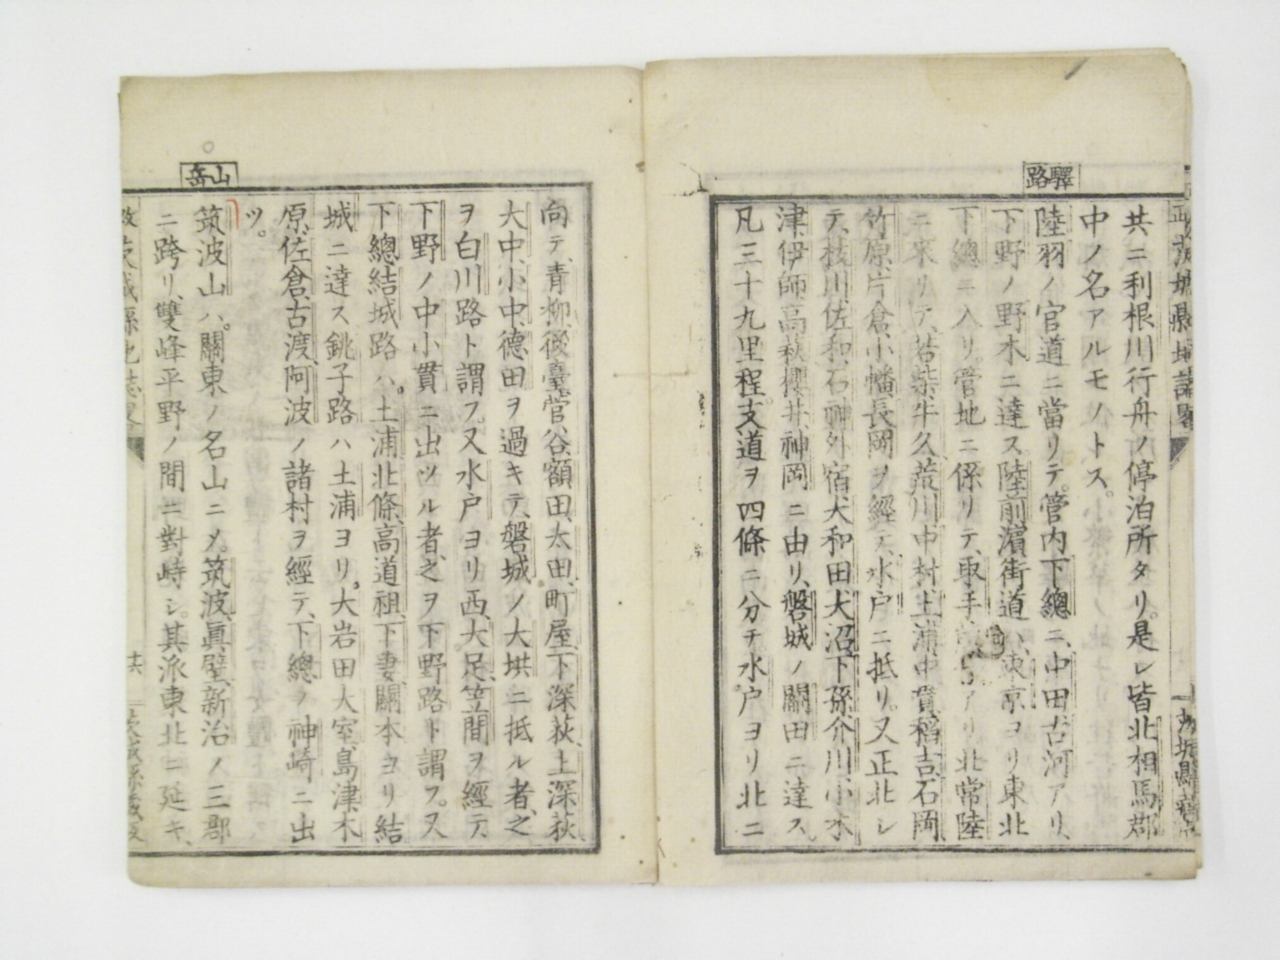 驛路
共ニ利根川行舟ノ停泊所タリ。是レ皆北相馬郡
中ノ名アルモノトス。
陸羽ノ官道ニ當リテ。管内下總ニ、中田古河アリ、
下野ノ野木ニ達ス陸前濱街道ハ、東京ヨリ東北
下總ニ入リ。管地ニ係リテ、取手、アリ北常陸
ニ來リテ、若柴牛久荒川中村土浦中貫稻吉石岡
竹原、片倉、小幡長岡ヲ經テ、水戸ニ抵リ。又正北シ
テ、枝川佐和石神外宿大和田大沼、下孫介川小木
津、伊師高萩櫻井、神岡ニ由リ、磐城ノ關田ニ達ス
凡三十九里程。支道ヲ四條ニ分チ水戸ヨリ北ニ
山岳
向テ、青柳、後臺、菅谷、額田、太田、町屋、下深荻、上深荻、
大中、小中、德田ヲ過キテ、磐城ノ大垬ニ抵ル者、之
ヲ白川路ト謂フ。又水戸ヨリ西、大足、笠間ヲ經テ
下野ノ中小貫ニ出ツル者、之ヲ下野路ト謂フ。又
下總結城路ハ。土浦北條、高道祖、下妻、關本ヨリ結
城ニ達ス銚子路ハ土浦ヨリ。大岩田大室、島津木
原、佐倉、古渡、阿波ノ諸村ヲ經テ、下總ノ神崎ニ出
ツ。
筑波山ハ。關東ノ名山ニメ。筑波、眞壁、新治ノ三郡
ニ跨リ、雙峰平野ノ間ニ對峙シ。其派東北ニ延キ、
茨城縣地誌畧
十六